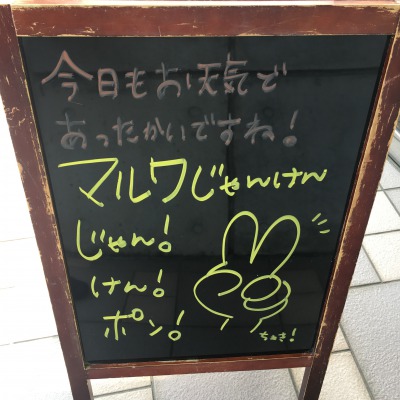 今日もお天気で
あったかいですね!
マルワじゃんけん
じゃん!
けん!
ポン!
ちょき!